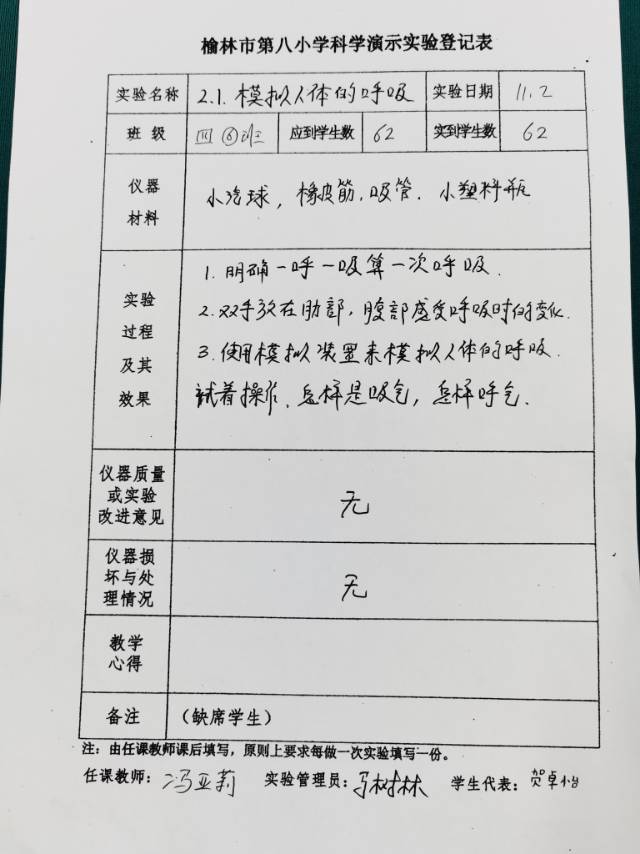 榆林市第八小学科学演示实验登记表
实验名称 2.1. 模拟人体的呼吸 实验日期 11.2
班 级 四⑥班 应到学生数 62 实到学生数 62
仪器
材料
小汽球，橡皮筋，吸管．小塑料瓶
实验
过程
及其
效果
1. 明确一呼一吸算一次呼吸．
2. 双手放在肋部，腹部感受呼吸时的变化．
3. 使用模拟装置来模拟人体的呼吸．
试着操作、怎样是吸气，怎样呼气．
仪器质量
或实验
改进意见
无
仪器损
坏与处
理情况
无
教学
心得
备注 （缺席学生）
注：由任课教师课后填写，原则上要求每做一次实验填写一份。
任课教师：冯亚莉 实验管理员：马树林 学生代表：贺卓怡